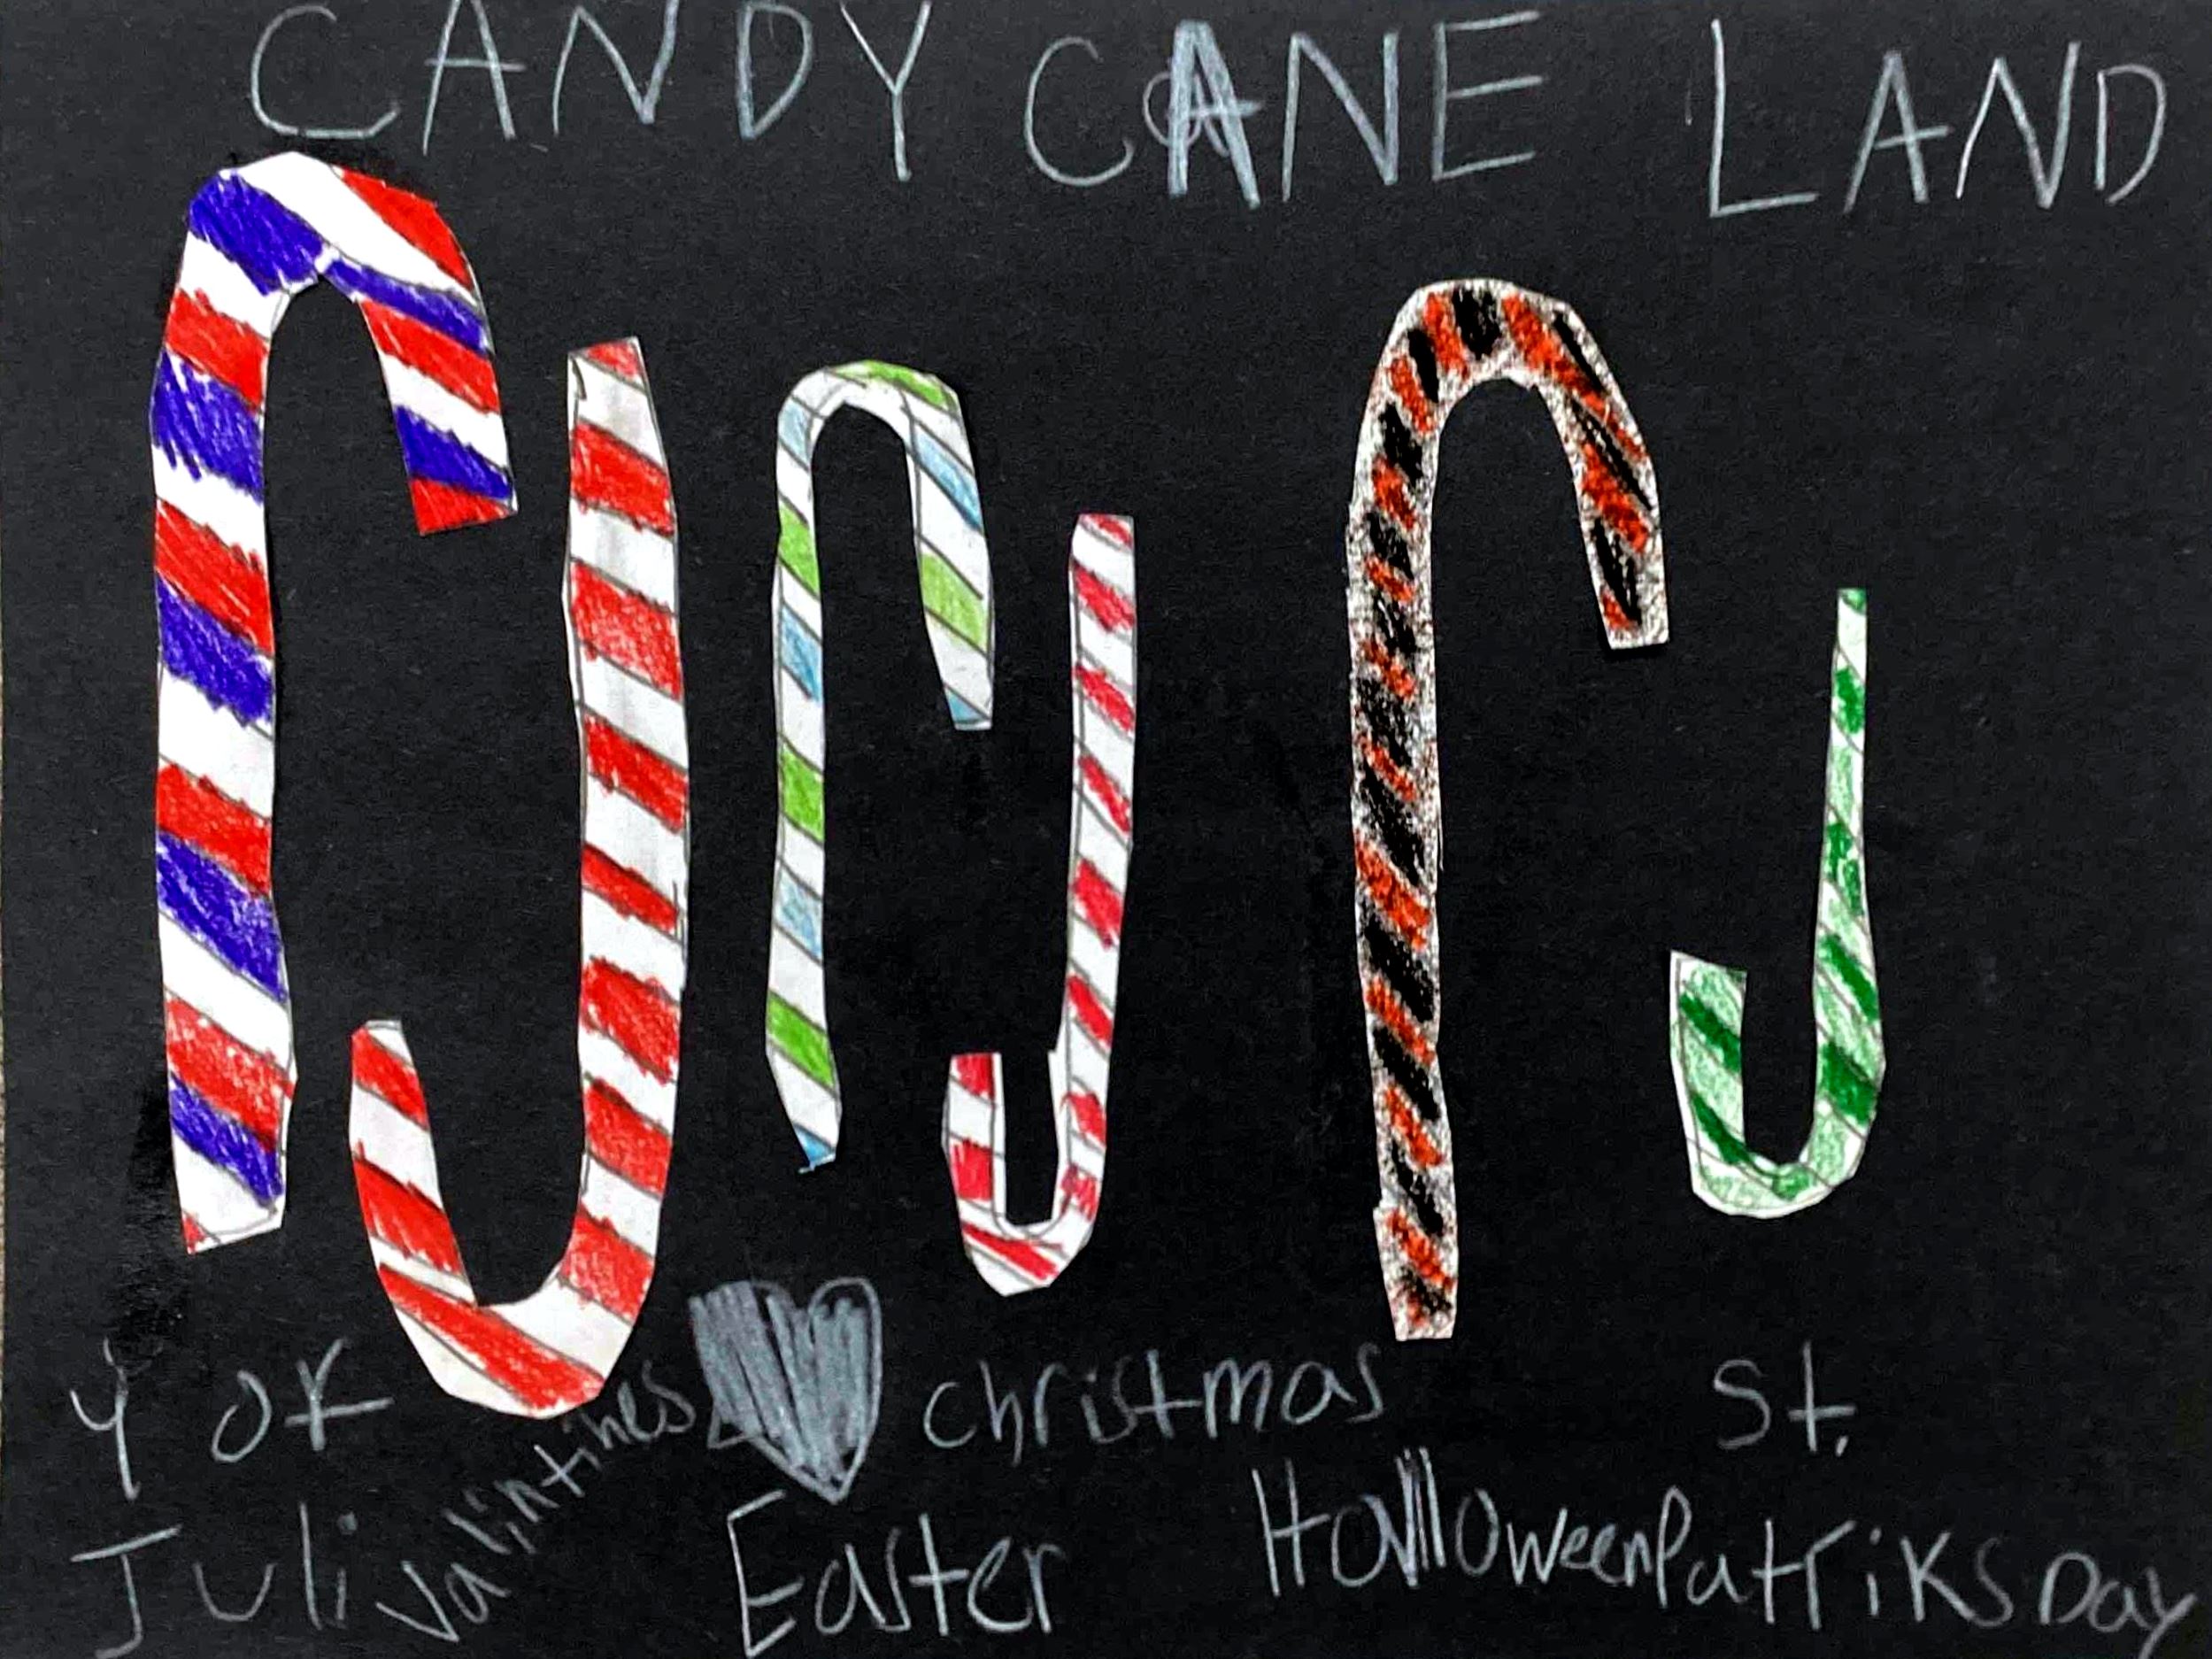 CANDY CANE LAND
4 of
Juli
valintines
christmas
Easter
Halloween
St.
Patriks Day